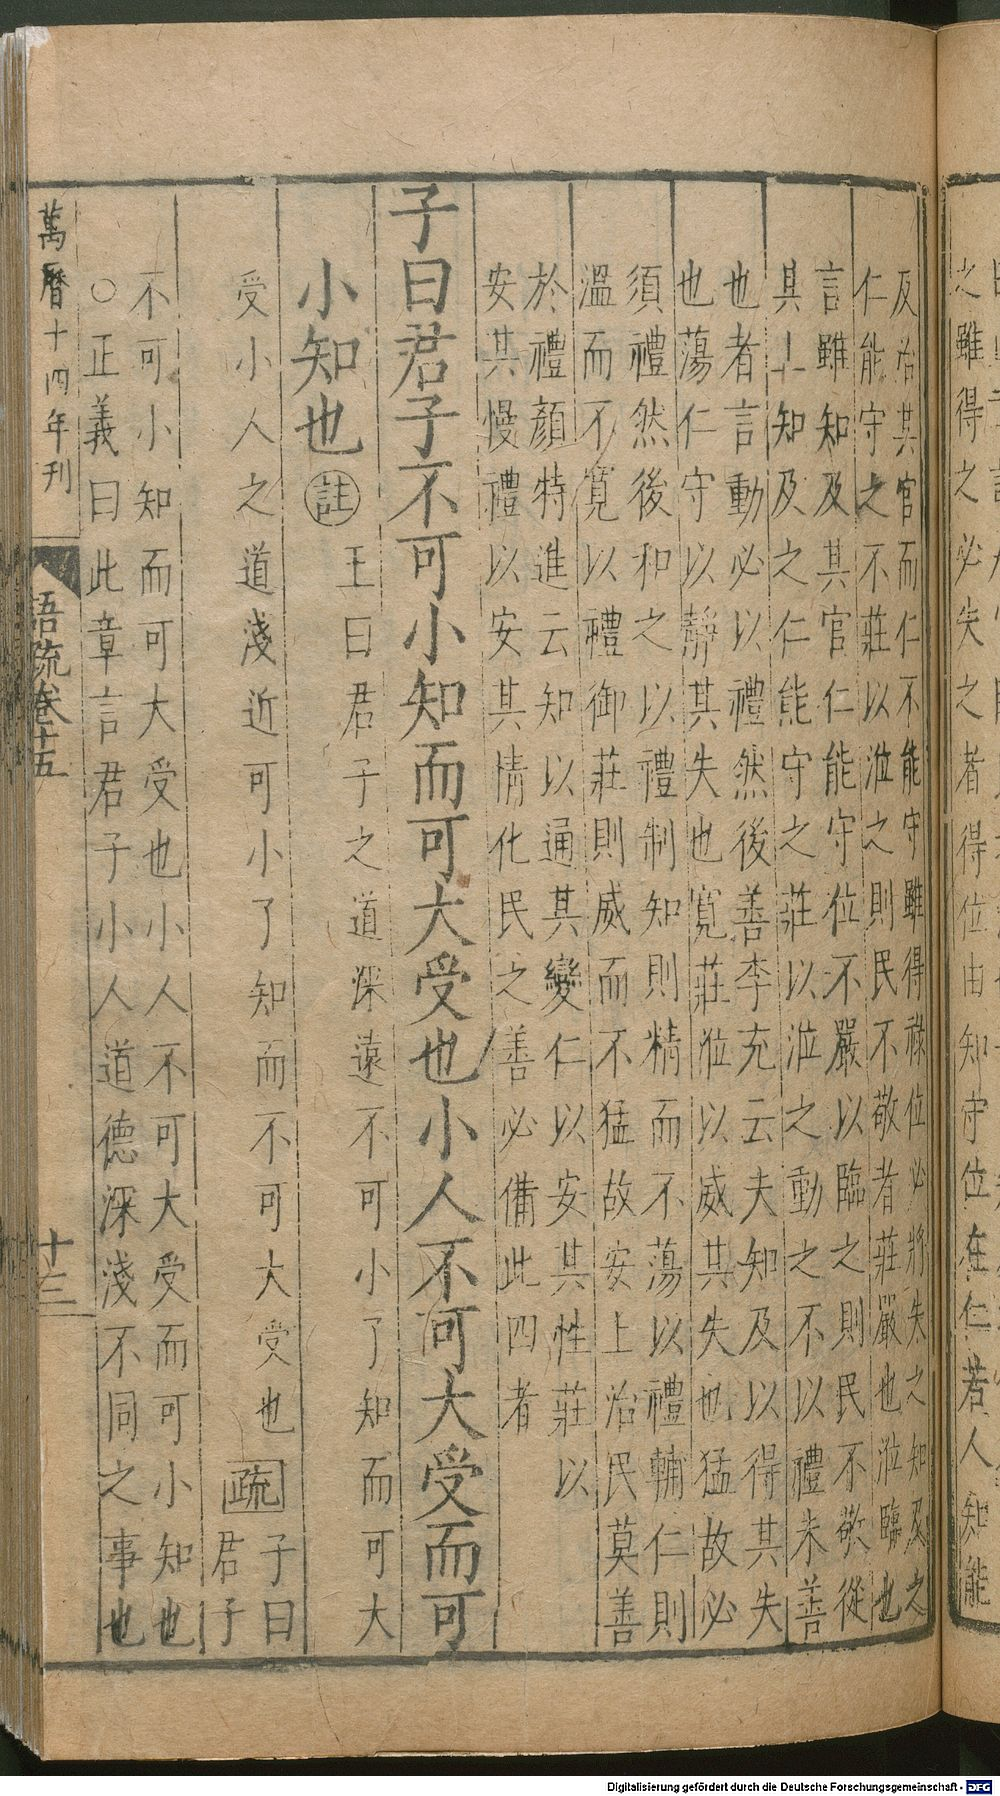 之雖得之必失之者得位由知守位在仁若人知能
及治其官而仁不能守雖得祿位必將失之知及之
仁能守之不莊以涖之則民不敬者莊嚴也涖臨也
言雖知及其官仁能守位不嚴以臨之則民不敬從
其上知及之仁能守之莊以涖之動之不以禮未善
也者言動必以禮然後善李充云夫知及以得其失
也蕩仁守以靜其失也寬莊涖以威其失也猛故必
須禮然後和之以禮制知則精而不蕩以禮輔仁則
溫而不寬以禮御莊則威而不猛故安上治民莫善
於禮顏特進云知以通其變仁以安其性莊以
安其慢禮以安其情化民之善必備此四者
子曰君子不可小知而可大受也小人不可大受而可
小知也
註
王曰君子之道深遠不可小了知而可大
受小人之道淺近可小了知而不可大受也
疏
子曰
君子
不可小知而可大受也小人不可大受而可小知也
○正義曰此章言君子小人道德深淺不同之事也
萬曆十四年刊
語疏卷十五
十三
Digitalisierung gefördert durch die Deutsche Forschungsgemeinschaft - DFG